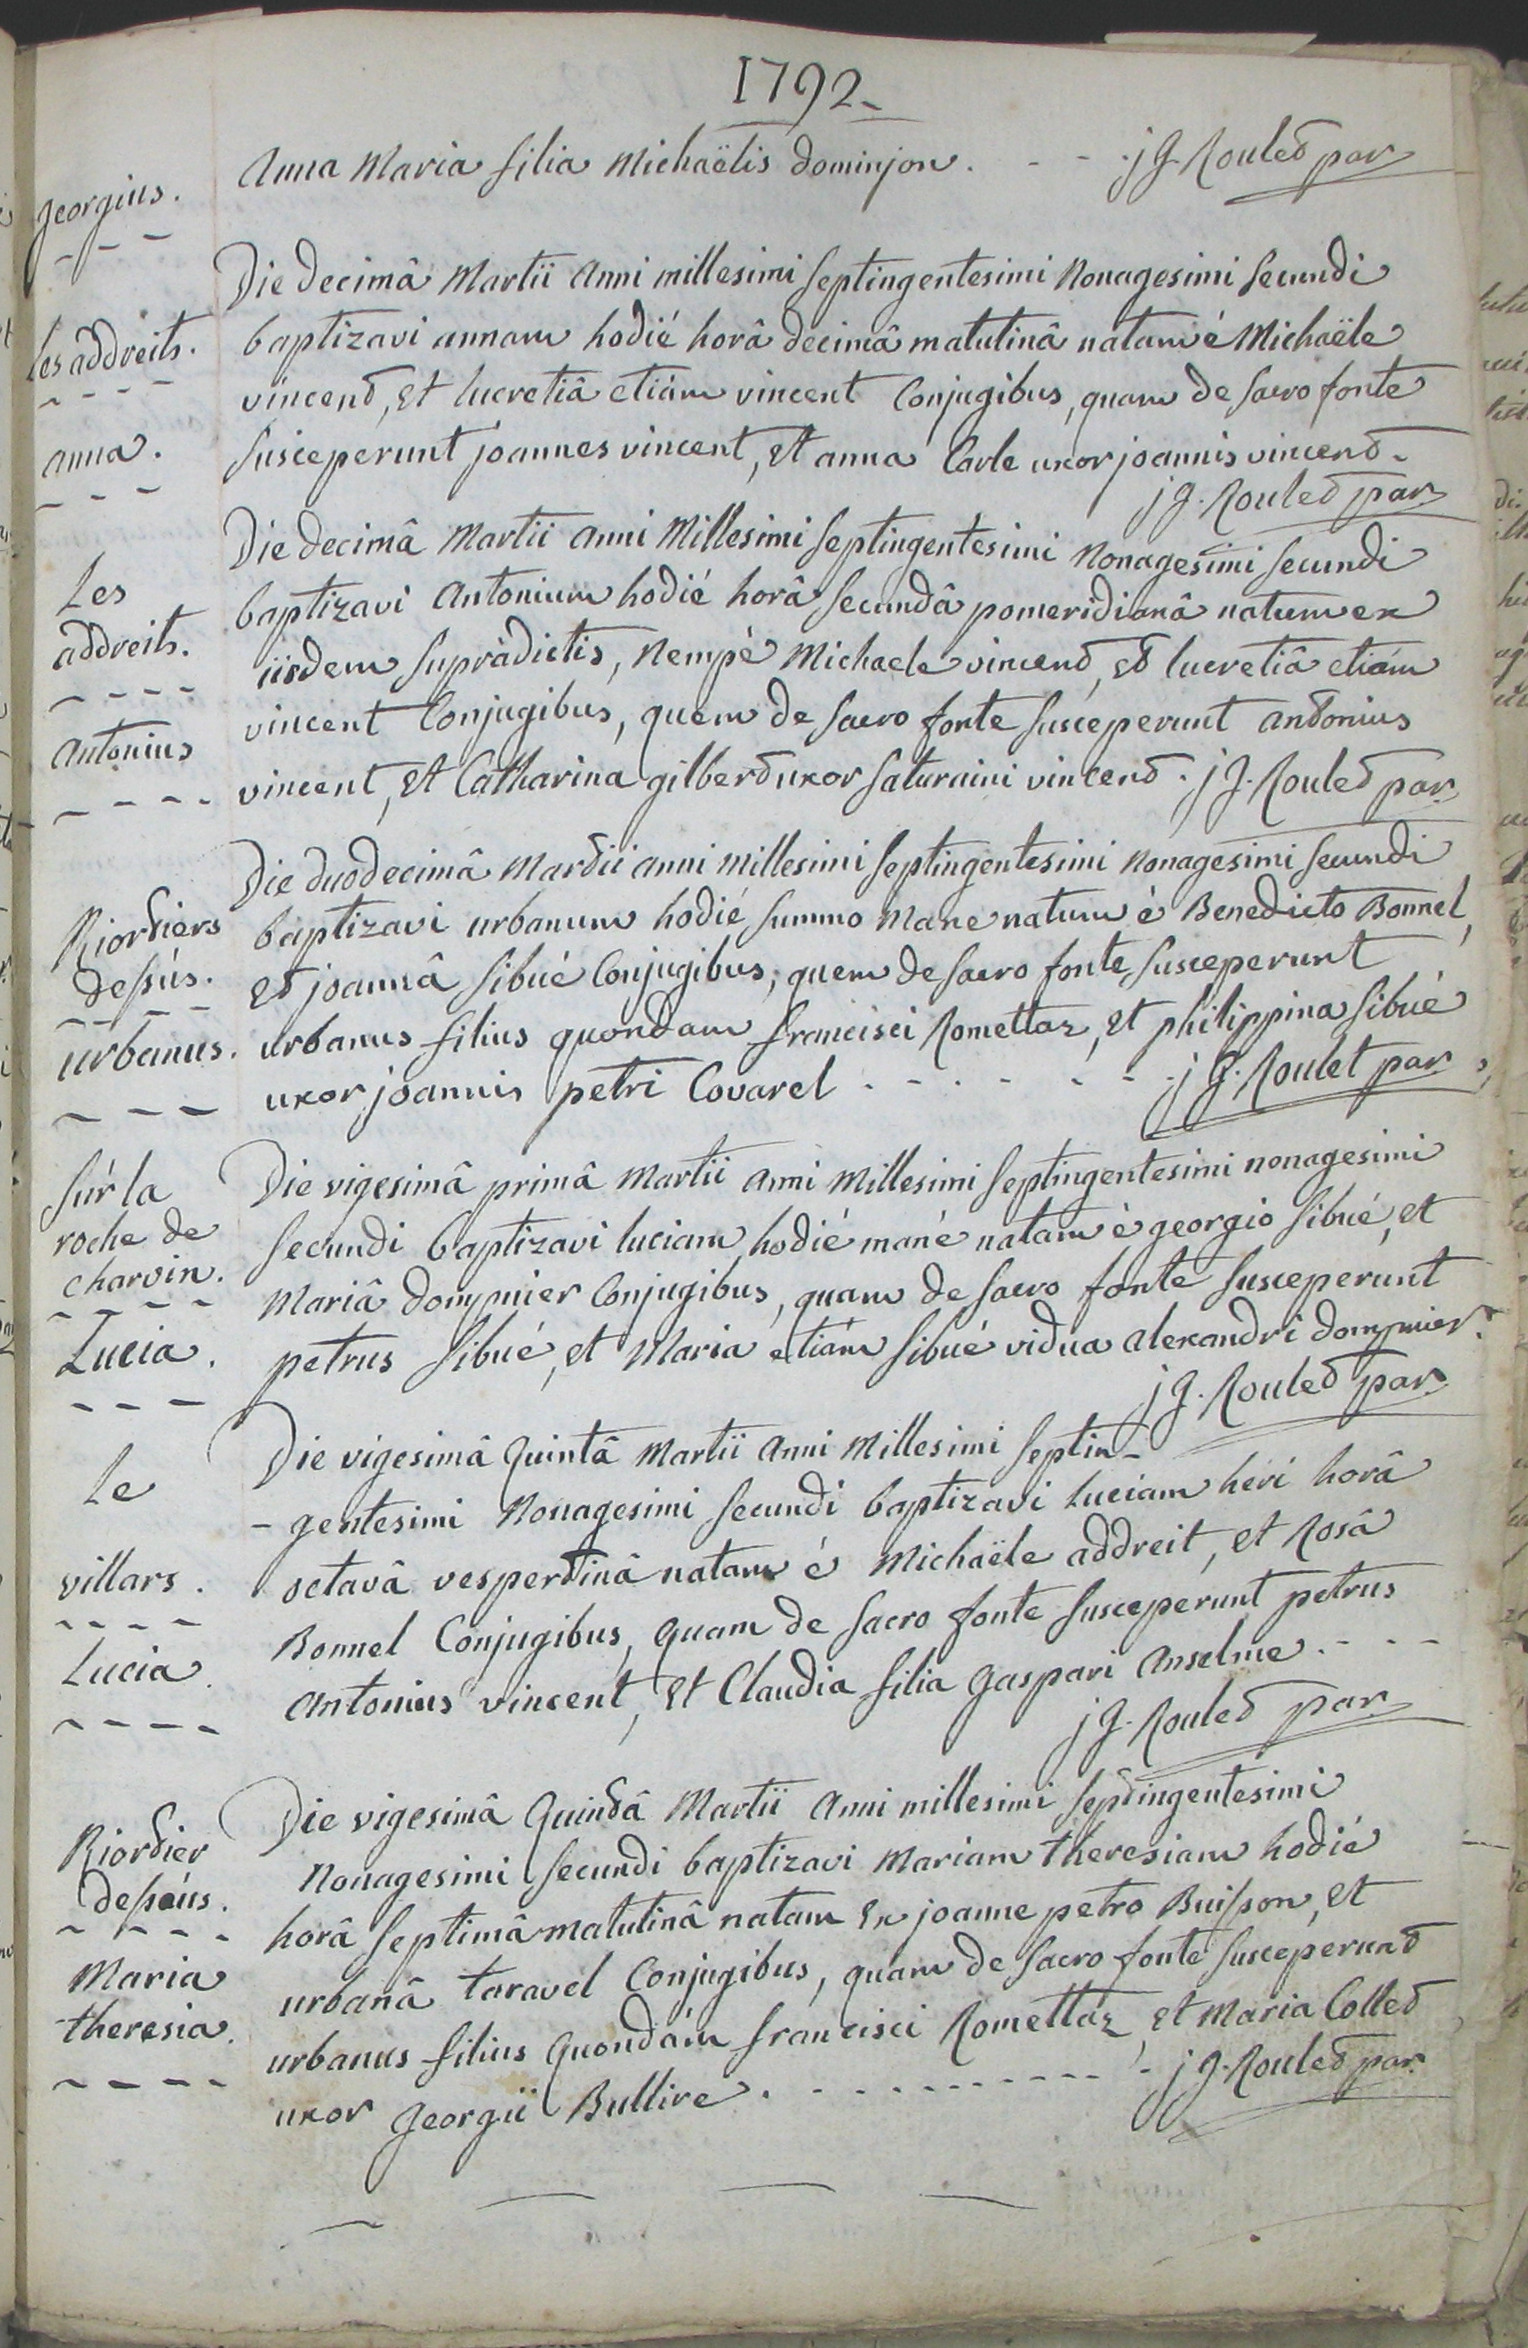 1792.
georgius.
Anna Maria filia Michaëlis dominjon. - - - j G. Roulet par
Les addreits.
anna.
Die decimâ Martii anni millesimi septingentesimi nonagesimi secundi
baptizavi annam hodié horâ decimâ matutinâ natam é Michaële
vincent, et lucretiâ etiám vincent Conjugibus, quam de sacro fonte
susceperunt joannes vincent, et anna Carle uxor joannis vincent.
j G. Roulet par
Les
addreits.
Antonius
Die decimâ Martii anni Millesimi septingentesimi nonagesimi secundi
baptizavi Antonium hodié horâ secundâ pomeridianâ natum ex
iisdem supràdictis, nempé Michaele vincent, et lucretiâ etiám
vincent Conjugibus, quem de sacro fonte susceperunt antonius
vincent, et Catharina gilbert uxor saturnini vincent. j G. Roulet par
Riortiers
dessús.
urbanus.
Die duodecimâ Martii anni Millesimi septingentesimi nonagesimi secundi
baptizavi urbanum hodié summo mane natum è Benedicto Bonnel,
et joannâ sibué Conjugibus, quem de sacro fonte susceperunt
urbanus filius quondam francisci Romettaz, et philippina sibué
uxor joannis petri Covarel . - . - . - . - j G. Roulet par
súr la
roche de
charvin.
Lucia.
Die vigesimâ primâ Martii anni Millesimi septingentesimi nonagesimi
secundi baptizavi luciam hodié mané natam è georgio sibué, et
Mariâ dompnier Conjugibus, quam de sacro fonte susceperunt
petrus sibué, et Maria etiám sibué vidua alexandri dompnier.
j G. Roulet par
Le
villars.
Lucia.
Die vigesimâ quintâ Martii anni Millesimi septin-
- gentesimi Nonagesimi secundi baptizavi Luciam herí horâ
octavâ vespertinâ natam é Michaële addreit, et Rosâ
Bonnel Conjugibus, quam de sacro fonte susceperunt petrus
Antonius vincent, et Claudia filia gaspari Anselme. - - -
j G. Roulet par
Riortier
dessús.
Maria
theresia.
Die vigesimâ Quintâ Martii Anni millesimi septingentesimi
nonagesimi secundi baptizavi Mariam theresiam hodié
horâ septimâ matutinâ natam Ex joanne petro Buisson, et
urbanâ taravel Conjugibus, quam de sacro fonte susceperunt
urbanus filius quondám francisci Romettaz, et Maria Collet
uxor georgii Bullire. - - - - - - - - - - j G. Roulet par.